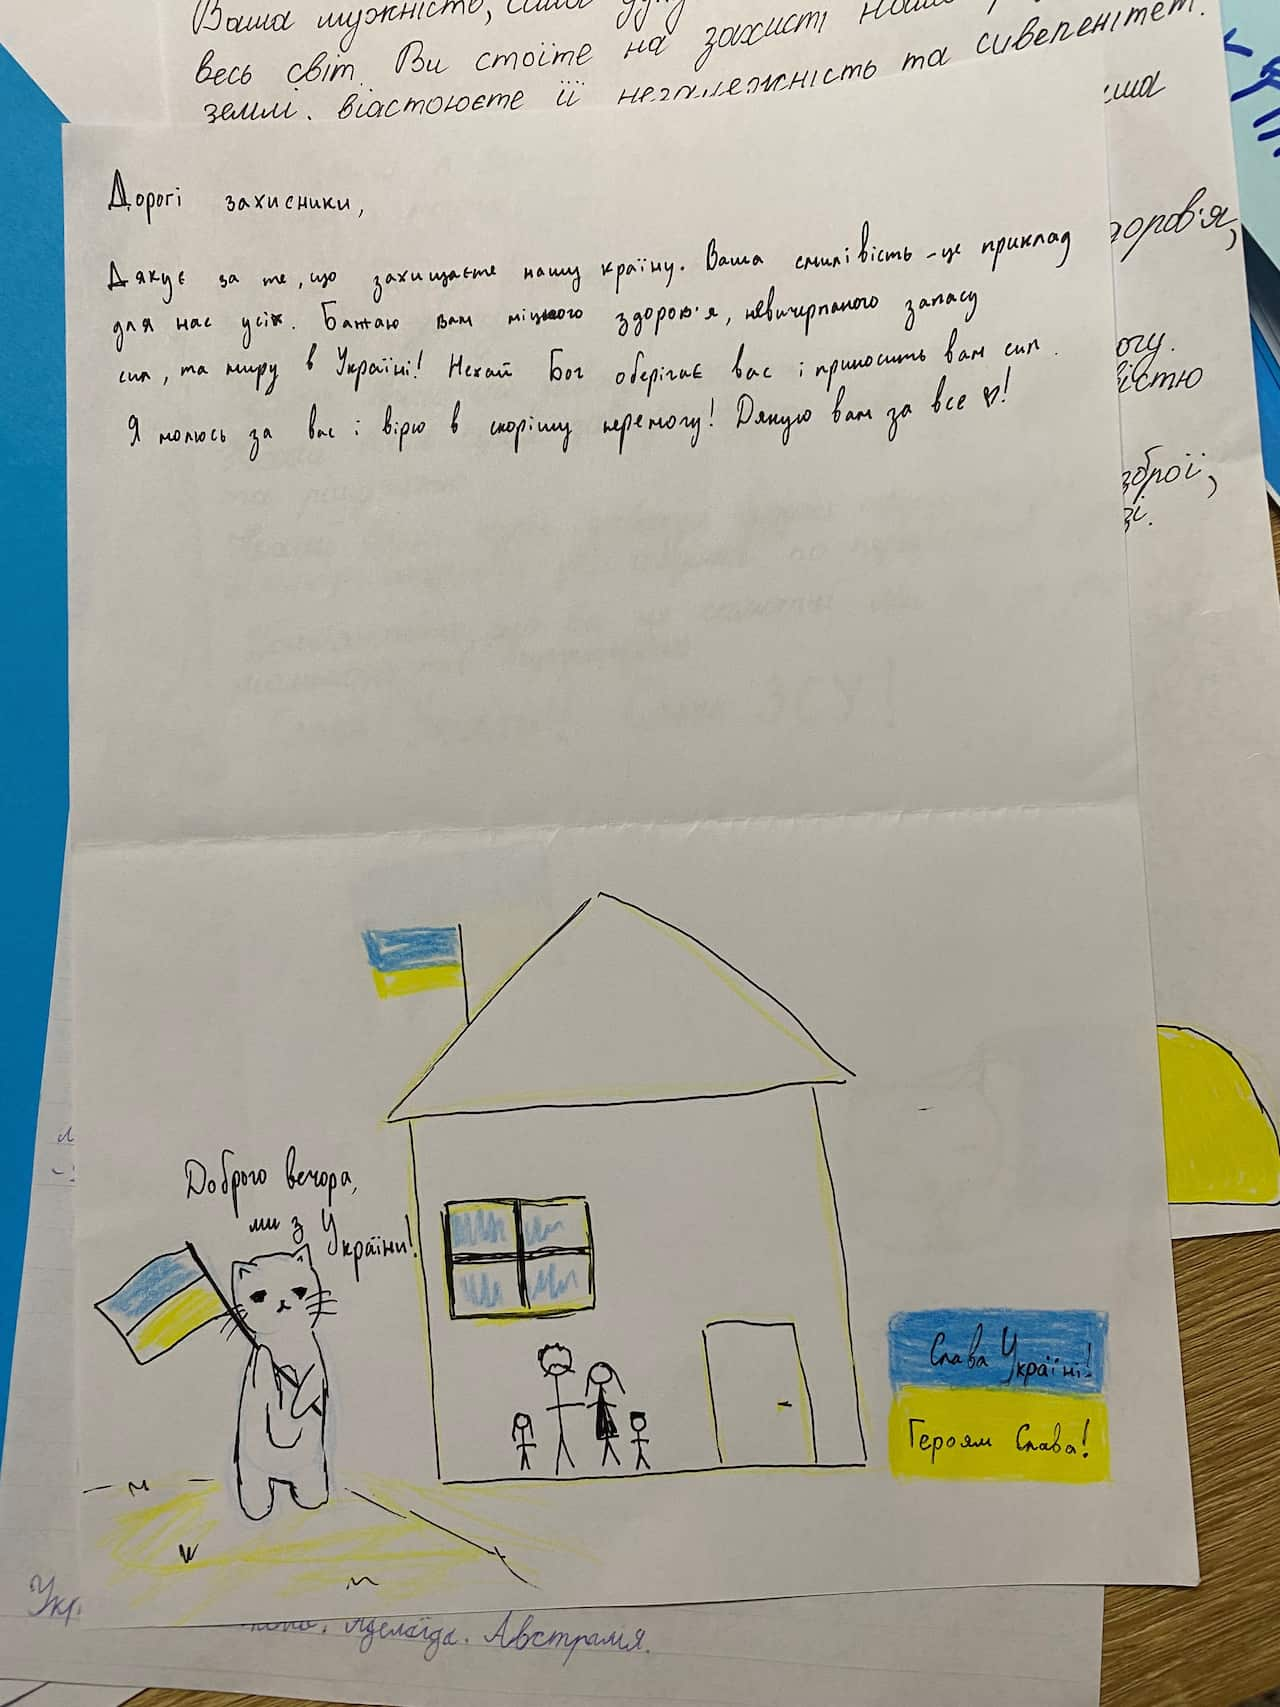 Ваша мужність,
весь світ. Ви стоїте на захисті
землі. відстоюєте її незалежність та сивепенітет.
Дорогі захисники,
Дякує за те, що захищаєте нашу країну. Ваша смилівість - це приклад
для нас усіх. Бажаю вам міцького здоров'я, невичирпаного запасу
сил, та миру в Україні! Нехай Бог оберігає вас і приносить вам сил.
Я молюсь за вас і вірю в скорішу перемогу! Дякую вам за все ♡!
доров'я,
огу.
істю
зброї,
зі.
Доброго вечора,
ми з
України!
Слава Україні!
Героям Слава!
Укр
Аделаїда. Австралія.